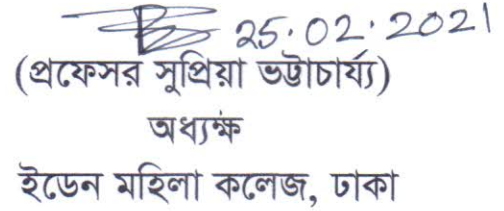 25.02.2021
(প্রফেসর সুপ্রিয়া ভট্টাচার্য্য)
অধ্যক্ষ
ইডেন মহিলা কলেজ, ঢাকা